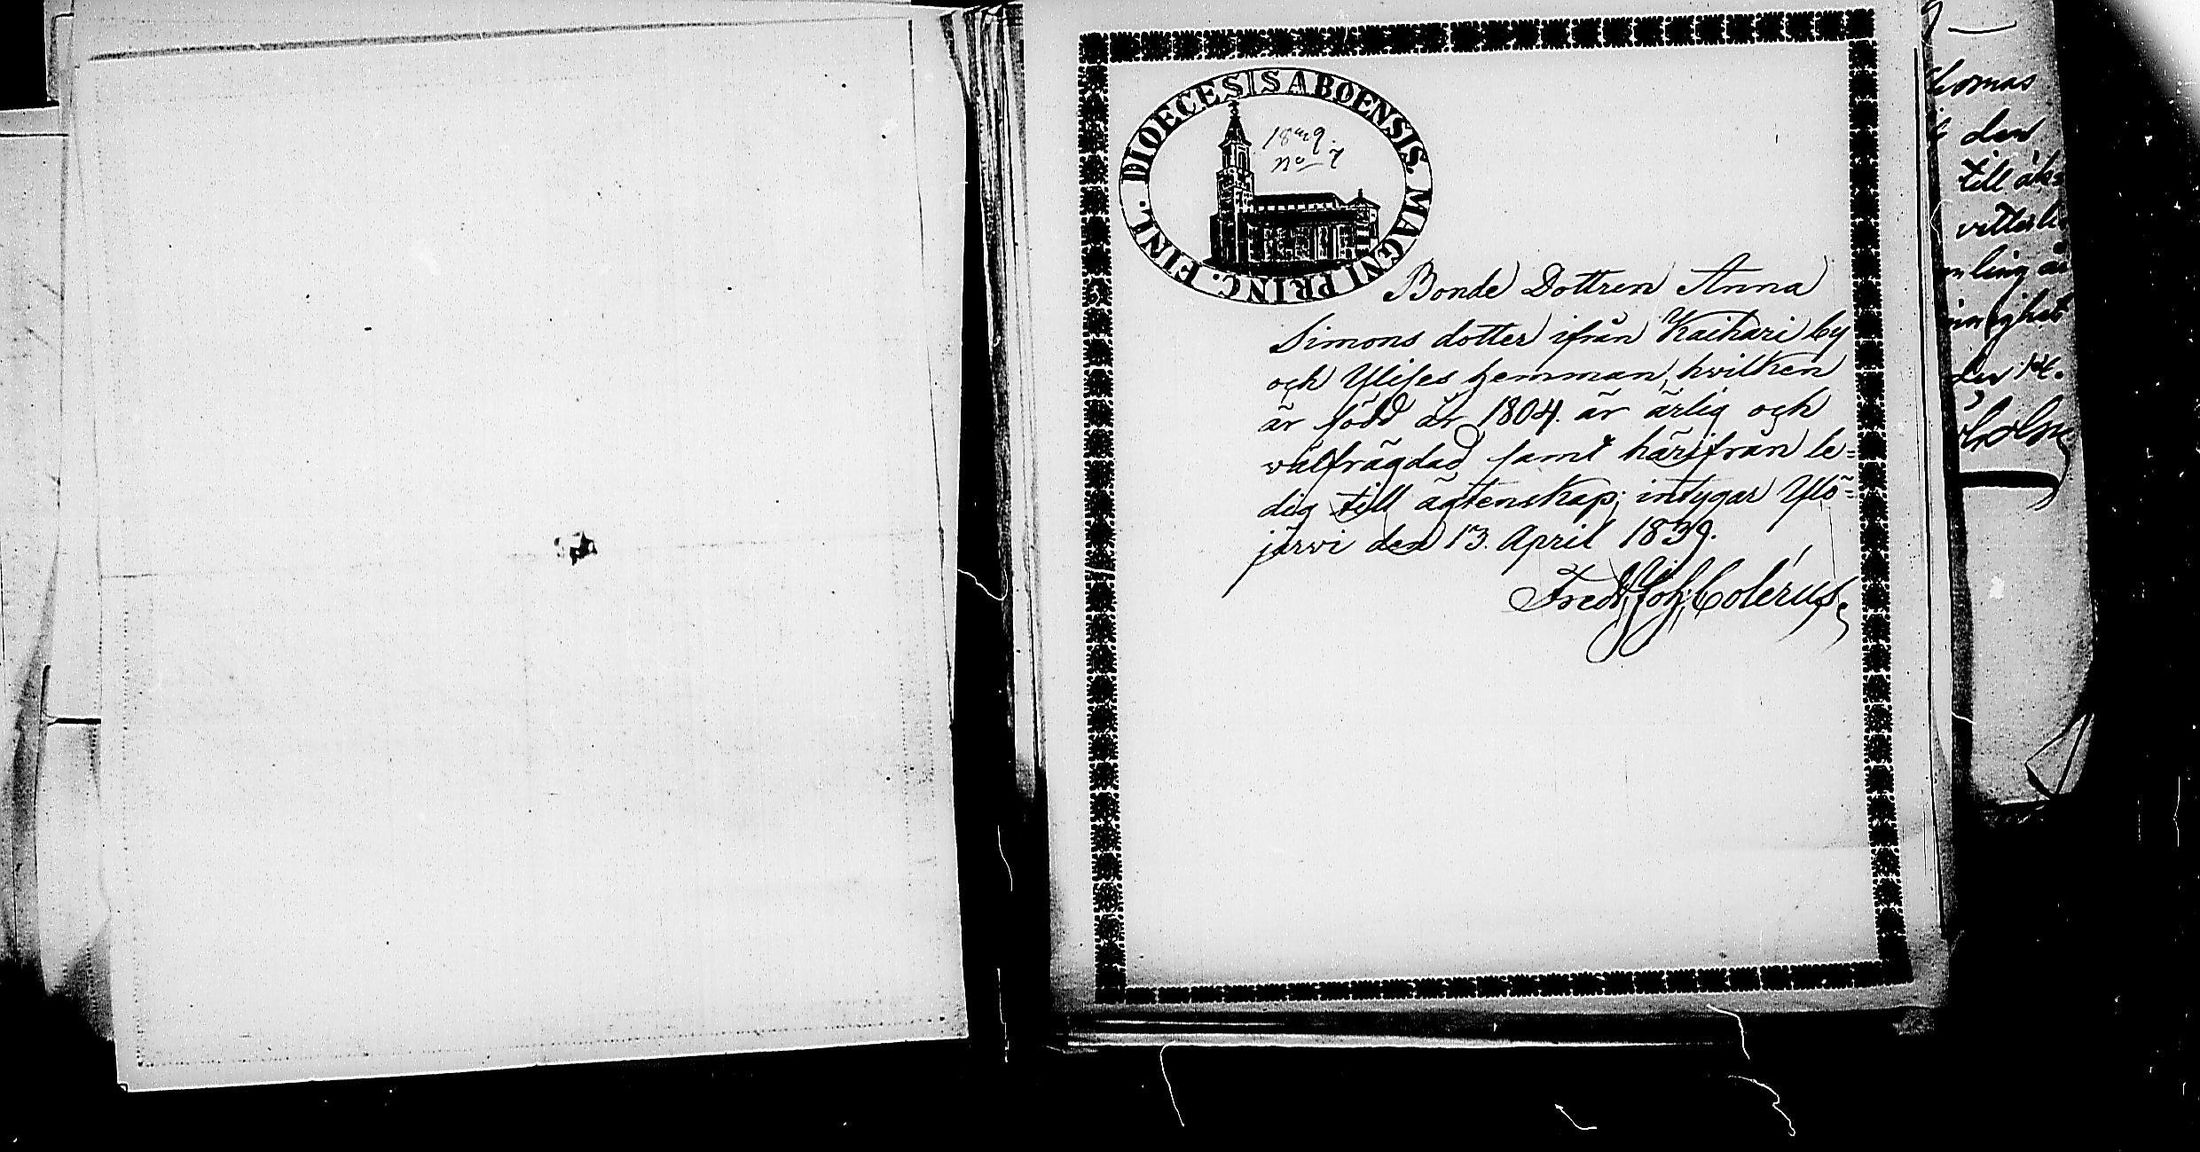 DIOECESIS ABOENSIS. MAGNI PRINC. FINL.
No 7
Bonde Dottren Anna
Simons dotter ifrån Kaihari by
och Ylises hemman, hvilken
är född år 1804. är ärlig och
välfrägdad samt härifrån le=
dig till ägtenskap; intygar Ylö=
järvi den 13. April 1839.
Fredr. Joh. Colérus.
homas
den
till
ling
den 14.